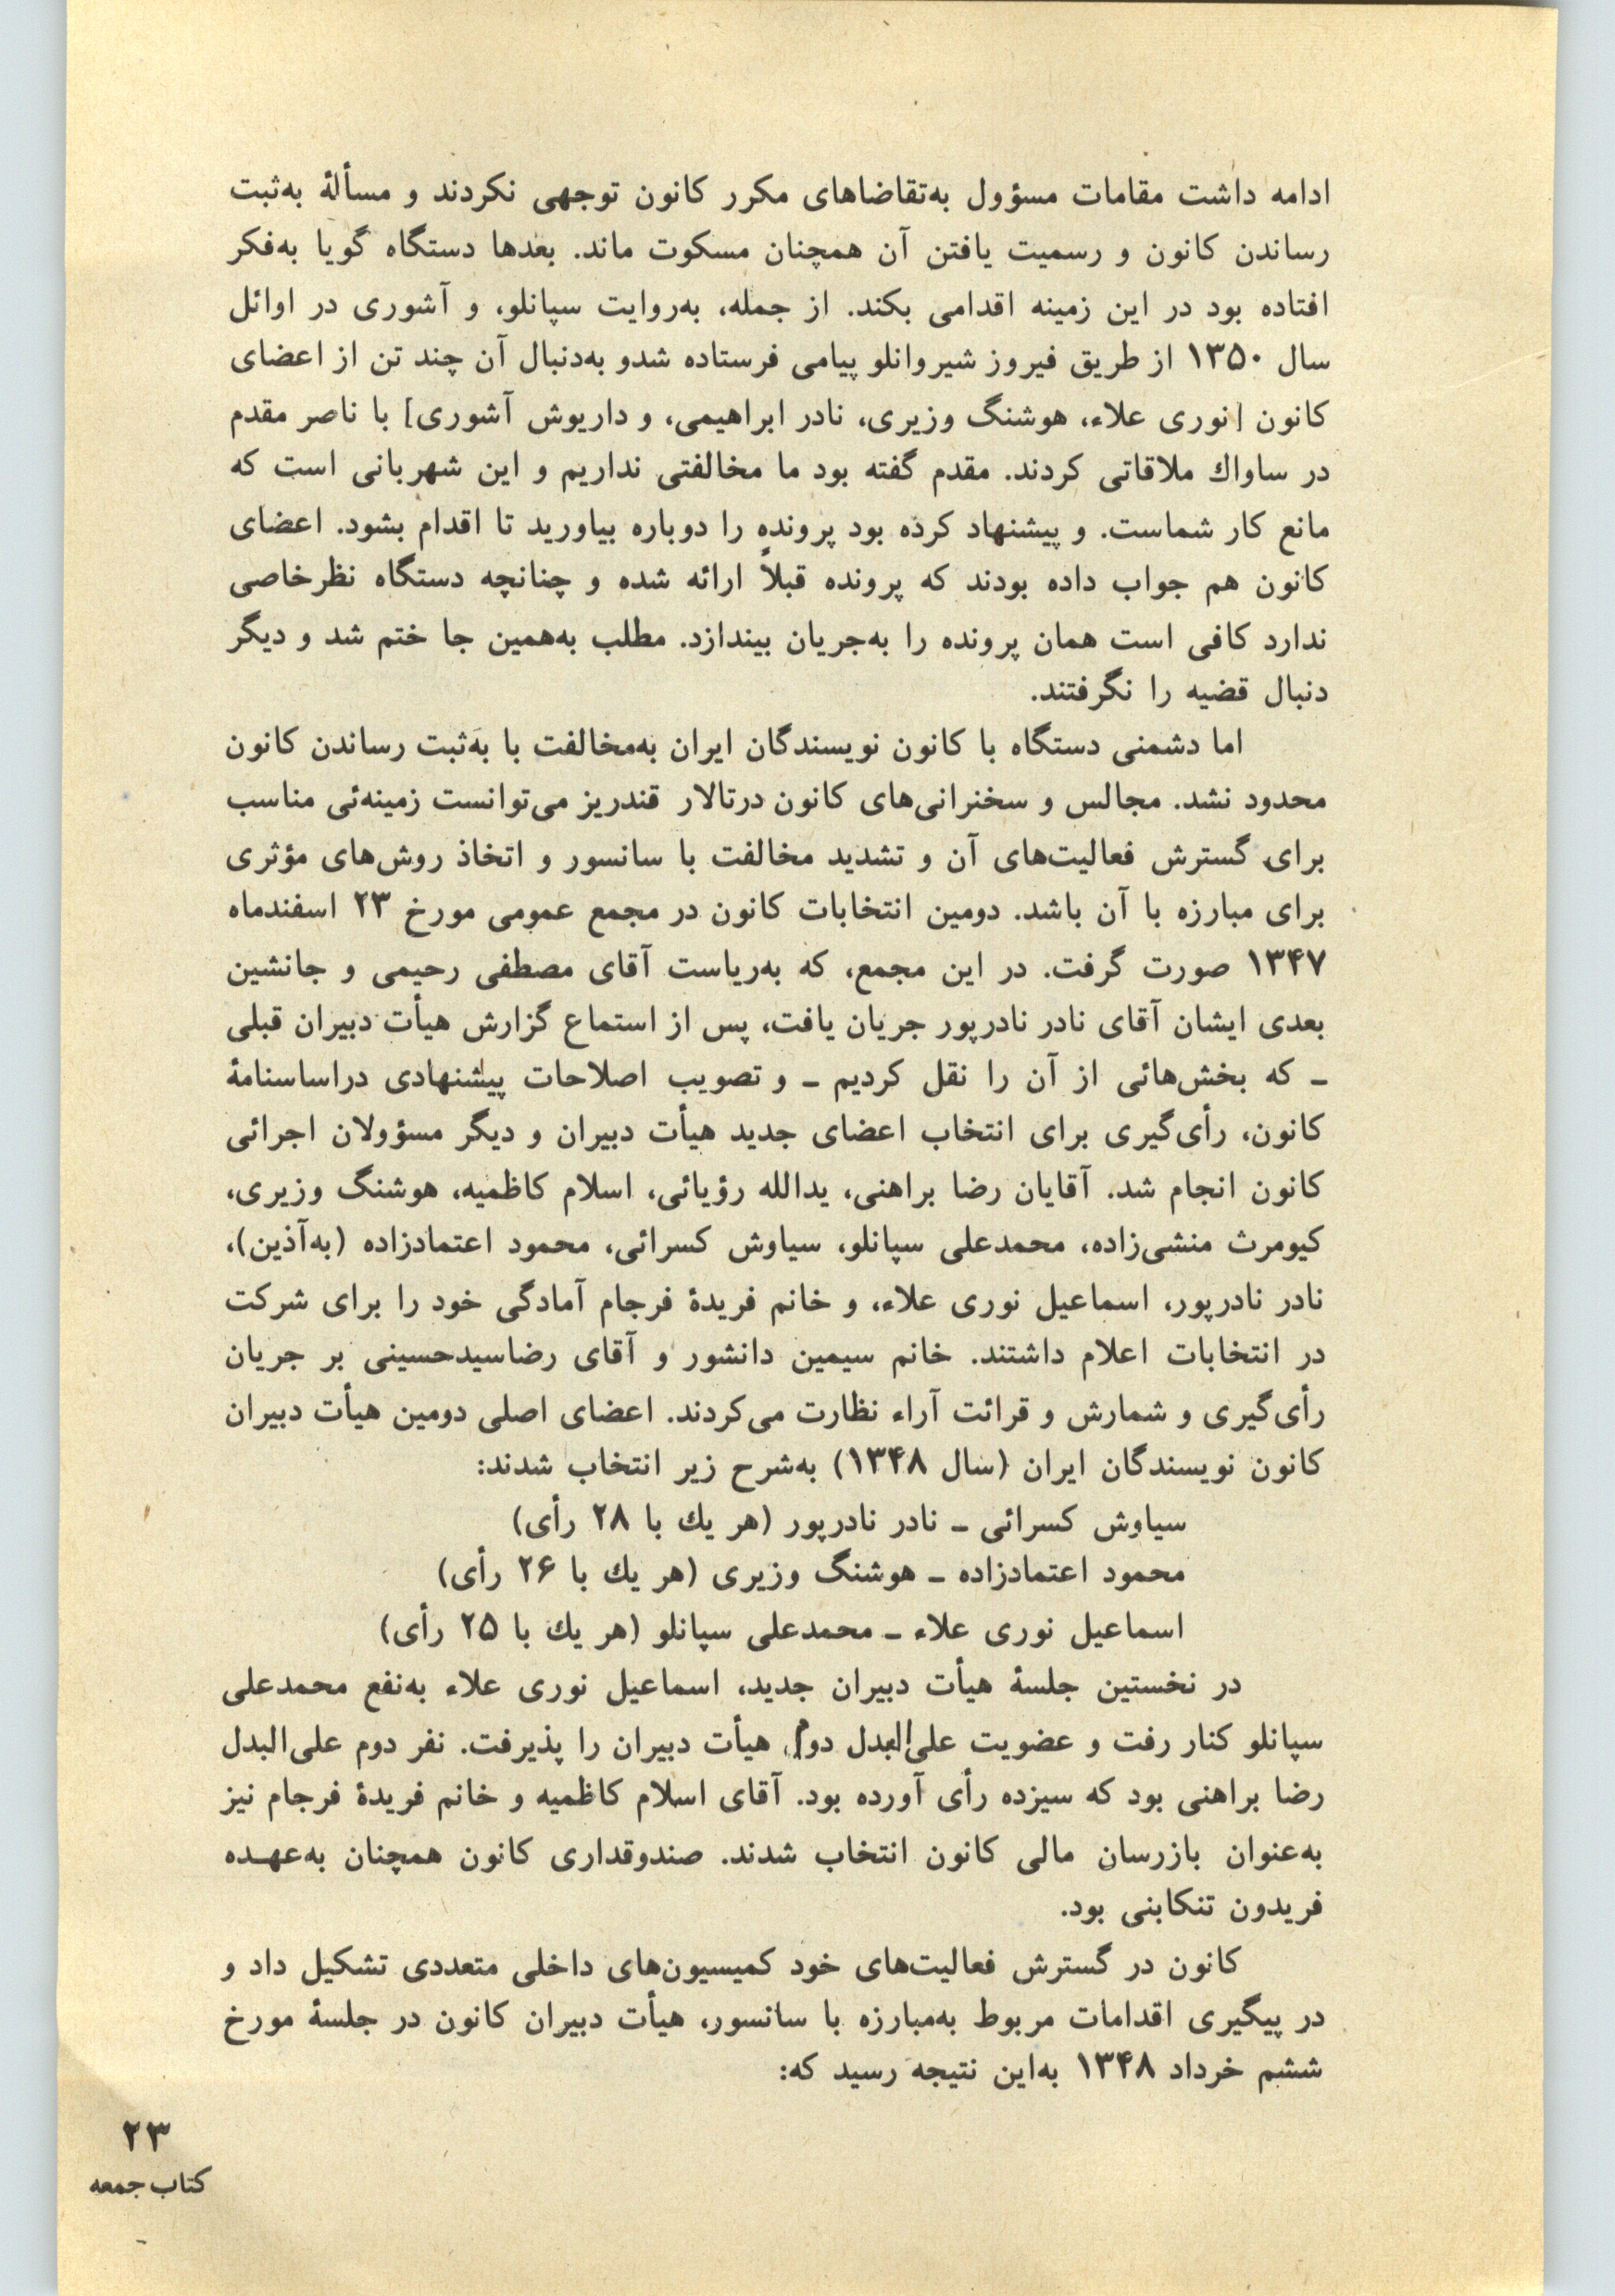 ادامه داشت مقامات مسؤول به‌تقاضاهای مکرر کانون توجهی نکردند و مسألهٔ به‌ثبت
رساندن کانون و رسمیت یافتن آن همچنان مسکوت ماند. بعدها دستگاه گویا به‌فکر
افتاده بود در این زمینه اقدامی بکند. از جمله، به‌روایت سپانلو، و آشوری در اوائل
سال ۱۳۵۰ از طریق فیروز شیروانلو پیامی فرستاده شدو به‌دنبال آن چند تن از اعضای
کانون [نوری علاء، هوشنگ وزیری، نادر ابراهیمی، و داریوش آشوری] با ناصر مقدم
در ساواك ملاقاتی کردند. مقدم گفته بود ما مخالفتی نداریم و این شهربانی است که
مانع کار شماست. و پیشنهاد کرده بود پرونده را دوباره بیاورید تا اقدام بشود. اعضای
کانون هم جواب داده بودند که پرونده قبلاً ارائه شده و چنانچه دستگاه نظرخاصی
ندارد کافی است همان پرونده را به‌جریان بیندازد. مطلب به‌همین جا ختم شد و دیگر
دنبال قضیه را نگرفتند.
اما دشمنی دستگاه با کانون نویسندگان ایران به‌مخالفت با به‌ثبت رساندن کانون
محدود نشد. مجالس و سخنرانی‌های کانون درتالار قندریز می‌توانست زمینه‌ئی مناسب
برای گسترش فعالیت‌های آن و تشدید مخالفت با سانسور و اتخاذ روش‌های مؤثری
برای مبارزه با آن باشد. دومین انتخابات کانون در مجمع عمومی مورخ ۲۳ اسفندماه
۱۳۴۷ صورت گرفت. در این مجمع، که به‌ریاست آقای مصطفی رحیمی و جانشین
بعدی ایشان آقای نادر نادرپور جریان یافت، پس از استماع گزارش هیأت دبیران قبلی
ـ که بخش‌هائی از آن را نقل کردیم ـ و تصویب اصلاحات پیشنهادی دراساسنامهٔ
کانون، رأی‌گیری برای انتخاب اعضای جدید هیأت دبیران و دیگر مسؤولان اجرائی
کانون انجام شد. آقایان رضا براهنی، یدالله رؤیائی، اسلام کاظمیه، هوشنگ وزیری،
کیومرث منشی‌زاده، محمدعلی سپانلو، سیاوش کسرائی، محمود اعتمادزاده (به‌آذین)،
نادر نادرپور، اسماعیل نوری علاء، و خانم فریدهٔ فرجام آمادگی خود را برای شرکت
در انتخابات اعلام داشتند. خانم سیمین دانشور و آقای رضاسیدحسینی بر جریان
رأی‌گیری و شمارش و قرائت آراء نظارت می‌کردند. اعضای اصلی دومین هیأت دبیران
کانون نویسندگان ایران (سال ۱۳۴۸) به‌شرح زیر انتخاب شدند:
سیاوش کسرائی ـ نادر نادرپور (هر یك با ۲۸ رأی)
محمود اعتمادزاده ـ هوشنگ وزیری (هر یك با ۲۶ رأی)
اسماعیل نوری علاء ـ محمدعلی سپانلو (هر یك با ۲۵ رأی)
در نخستین جلسهٔ هیأت دبیران جدید، اسماعیل نوری علاء به‌نفع محمدعلی
سپانلو کنار رفت و عضویت علی‌البدل دوم هیأت دبیران را پذیرفت. نفر دوم علی‌البدل
رضا براهنی بود که سیزده رأی آورده بود. آقای اسلام کاظمیه و خانم فریدهٔ فرجام نیز
به‌عنوان بازرسان مالی کانون انتخاب شدند. صندوقداری کانون همچنان به‌عهـده
فریدون تنکابنی بود.
کانون در گسترش فعالیت‌های خود کمیسیون‌های داخلی متعددی تشکیل داد و
در پیگیری اقدامات مربوط به‌مبارزه با سانسور، هیأت دبیران کانون در جلسهٔ مورخ
ششم خرداد ۱۳۴۸ به‌این نتیجه رسید که:
۲۳
کتاب جمعه